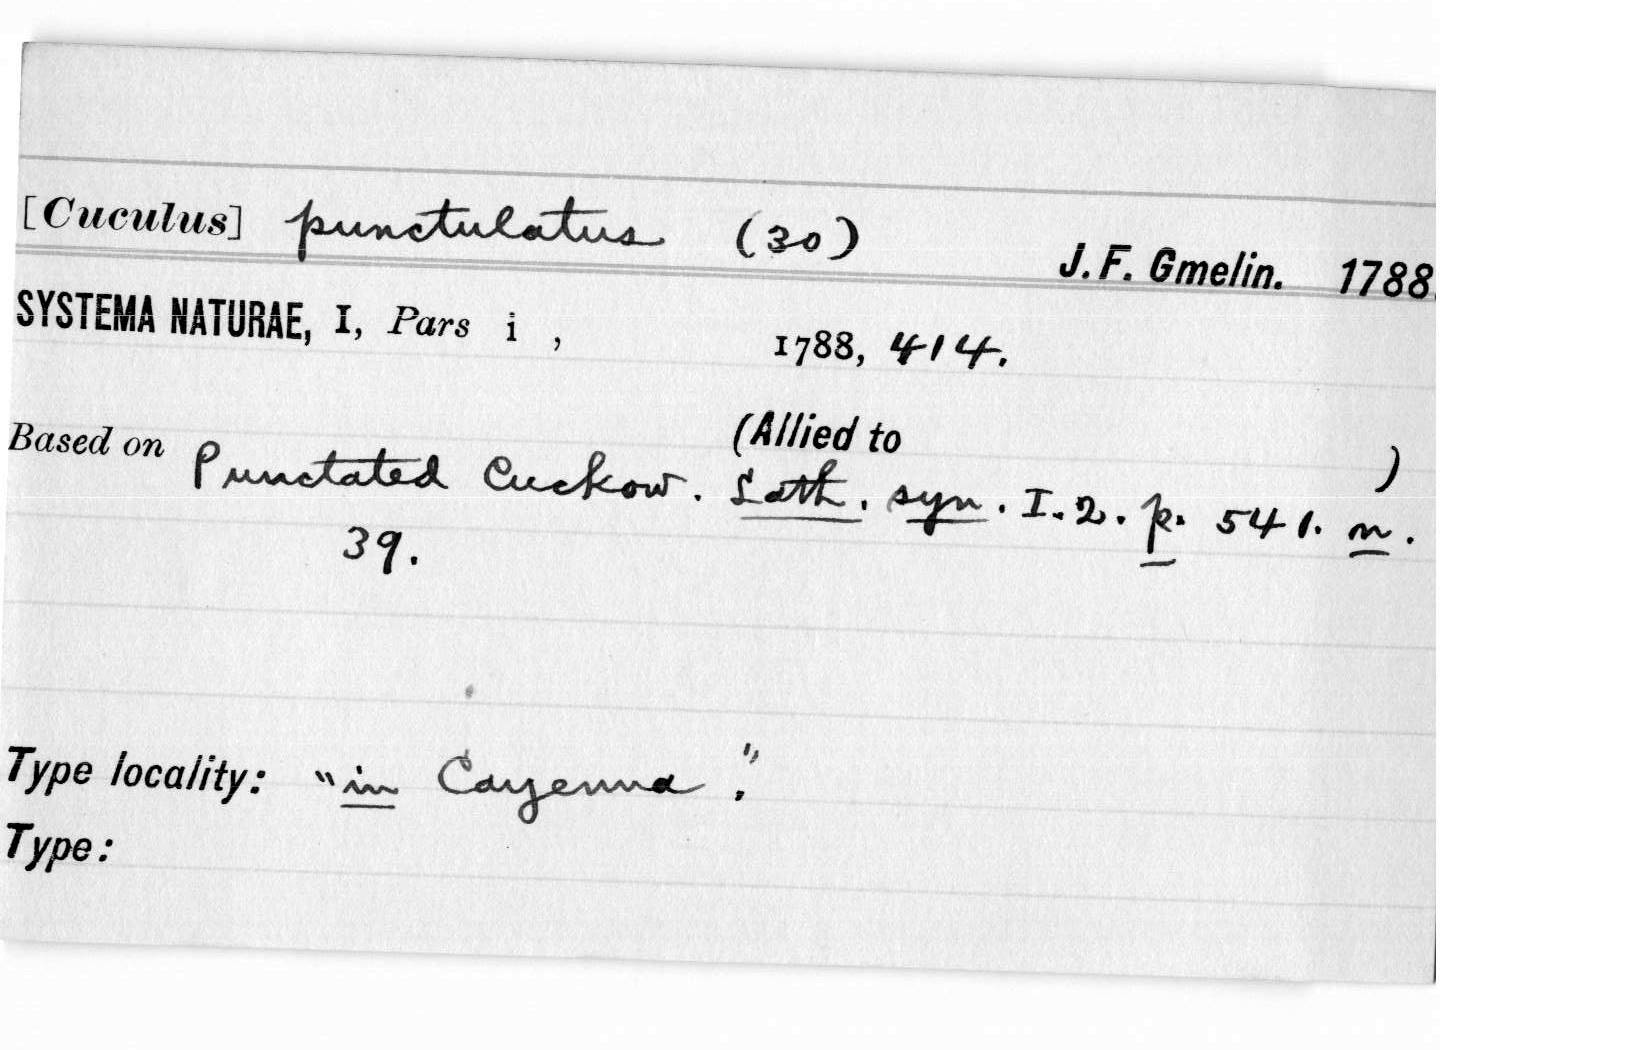 [Cuculus] punctulatus (30) J. F. Gmelin. 1788.
SYSTEMA NATURAE, I, Pars i , 1788, 414.
(Allied to )
Based on Punctated Cuckow. Lath. syn. I. 2. p. 541. n.
39.
Type locality: "in Cayenna."
Type: